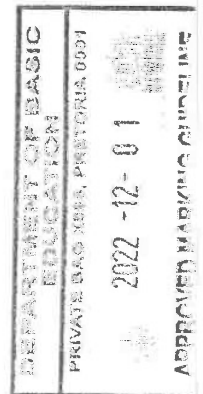 DEPARTMENT OF BASIC
EDUCATION
PRIVATE BAG X895, PRETORIA 0001
2022 -12- 01
APPROVED MARKING GUIDELINE